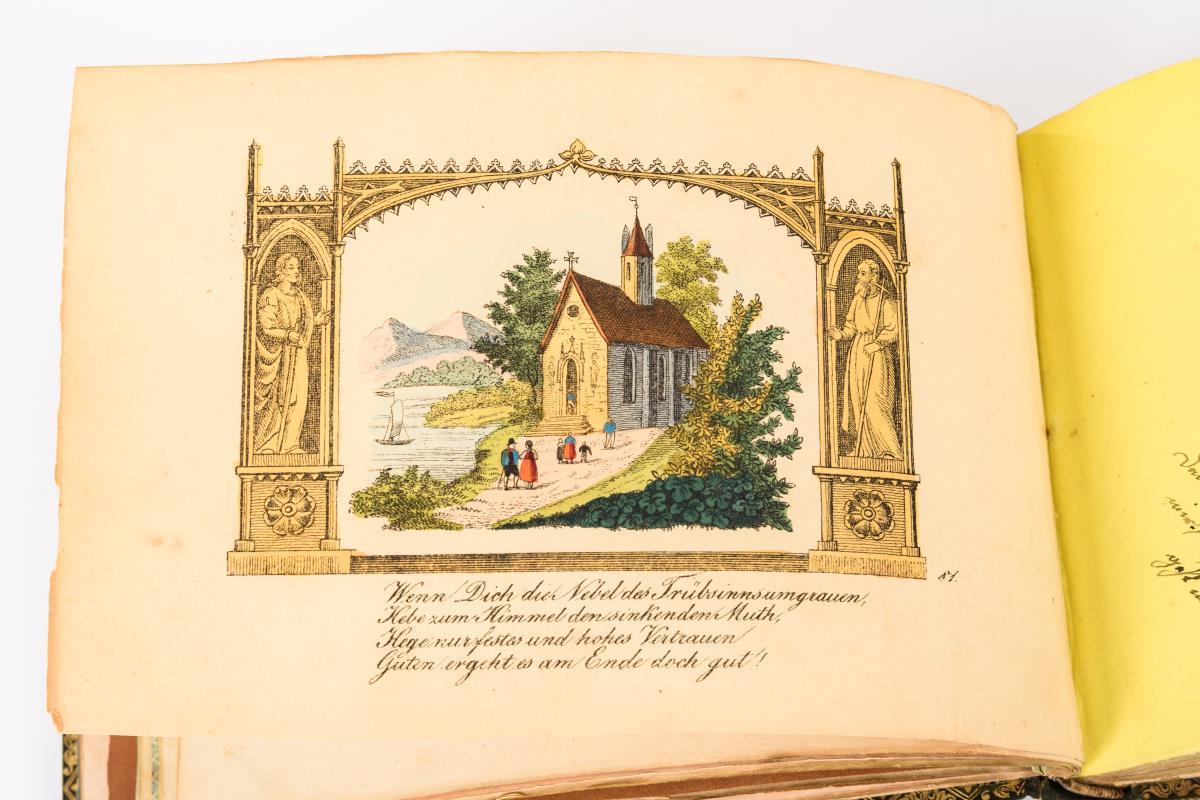 81.
Wenn Dich die Nebel des Trübsinns umgrauen,
Hebe zum Himmel den sinkenden Muth,
Hege nur festes und hohes Vertrauen
Guten ergeht es am Ende doch gut!